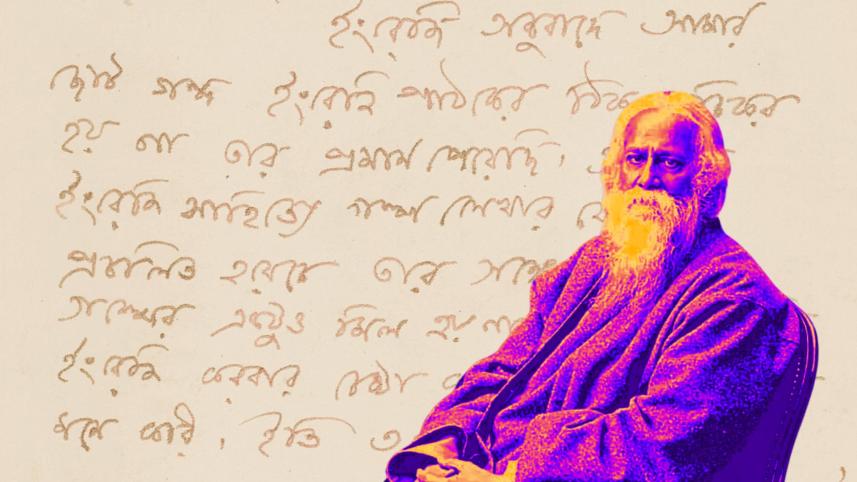 ইংরেজি অনুবাদে আমার
ছোট গল্প ইংরেজি পাঠকের
হয় না তার প্রমাণ পেয়েছি।
ইংরেজি সাহিত্যে গল্প লেখার
প্রচলিত হয়েছে তার সঙ্গে
গল্পের একটুও মিল হয় না
ইংরেজি করবার চেষ্টা
মনে করি। ইতি